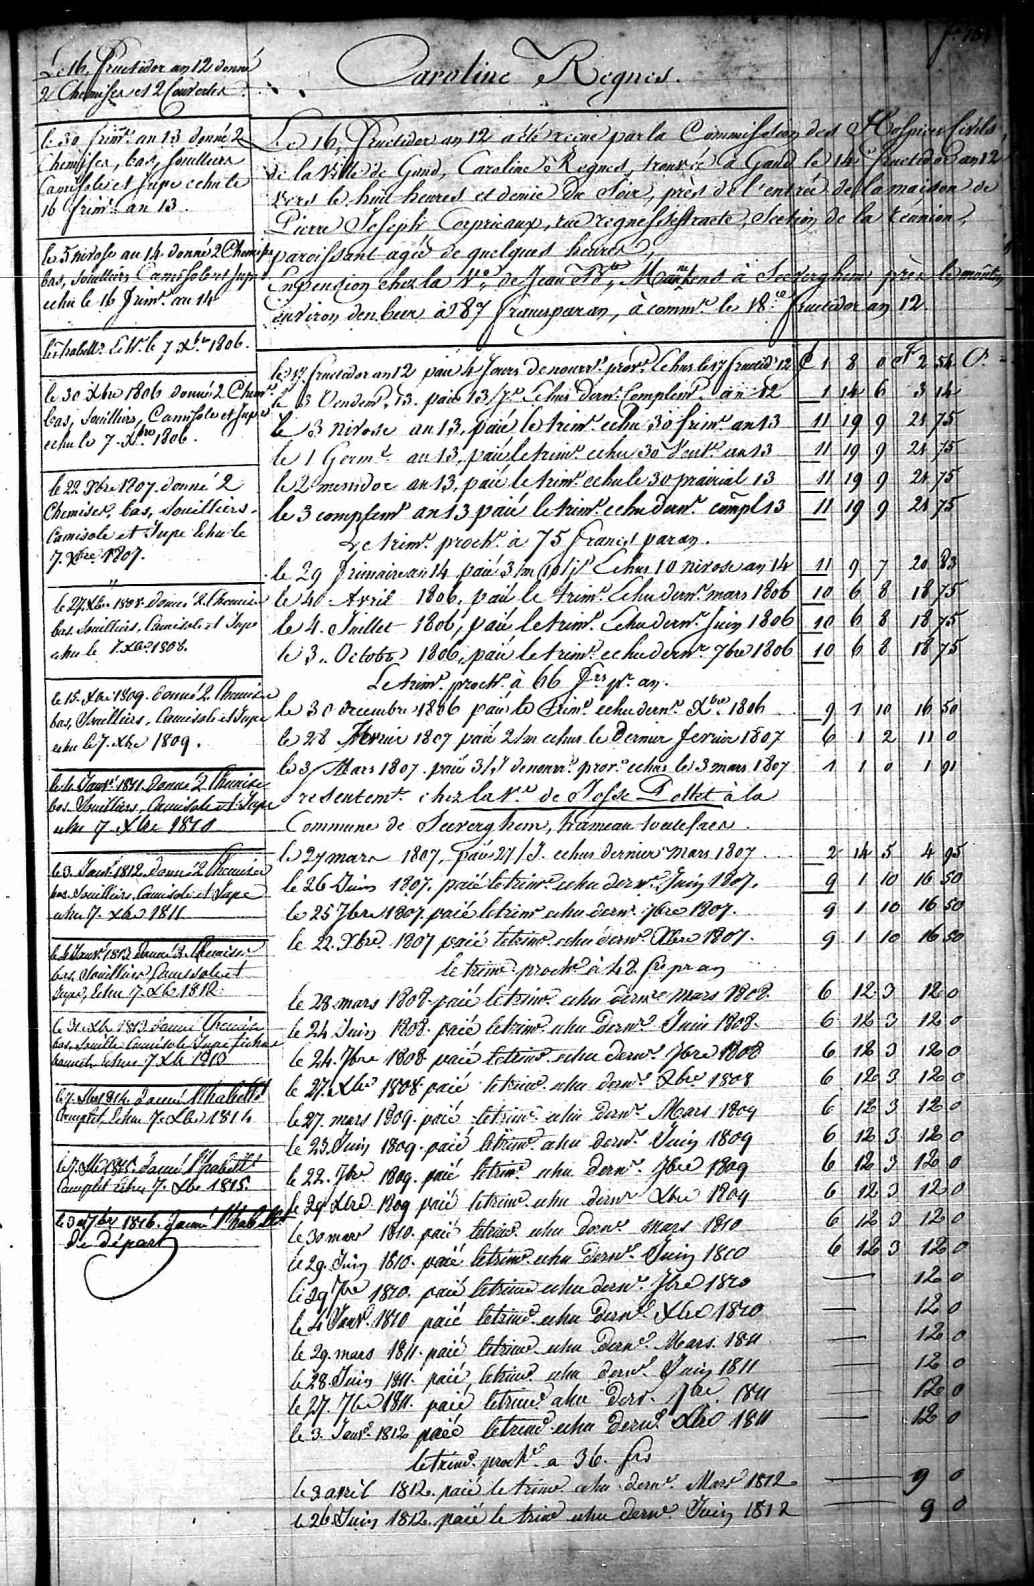 Caroline Regnes.
Le 16 Fructidor an 12 donné
2 Chemises et 2 Couvertes
le 30 frimre an 13 donné 2
Chemises, bas, souilliers
Camisole et Jupe echu le
16 frimre an 13.
le 5 nivose an 14 donné 2 Chemises
bas, souilliers Camisole et Jupe
echu le 16 frimre an 14
le 7 Xbre 1806.
le 30 Xbre 1806 donné 2 Chemses
bas, souilliers, Camisole et Jupe
echu le 7 Xbre 1806.
le 22 Xbre 1807 donné 2
Chemises, bas, souilliers
Camisole et Jupe Echu le
7 Xbre 1807.
le 27 Xbre 1808 donné 2 Chemise
bas, souilliers, Camisole et Jupe
echu le 7 Xbre 1808.
le 15 Xbre 1809 donné 2 Chemise
bas, souilliers, Camisole et Jupe
echu le 7 Xbre 1809.
le 4 Janvr 1811 donné 2 Chemise
bas, Souilliers, Camisole et Jupe
echu 7 Xbre 1810
le 3 Janvr 1812 donné 2 Chemise
bas, Souilliers, Camisole et Jupe
echu 7 Xbre 1811
Janvr 1813 donné 2 Chemise
bas, Souilliers Camisole et
Jupe, Echu 7 Xbre 1812
le 31 Xbre 1813 donné Chemise
bas, Souillr Camisole Jupe fichu
bonnet echu 7 Xbre 1813
le 7 Xbre 1814 donné l'habillt
Complet, Echu 7 Xbre 1814
le 7 Xbre 1815 donné l'habillt
Complet Echu 7 Xbre 1815
le 30 7bre 1816 donné l'habillt
de départ
Le 16 Fructidor an 12 a été recue par la Commission des Hospices Civils
de la Ville de Gand, Caroline Regnes, trouvée à Gand le 14e fructidor an 12
vers le huit heures et demie du Soir, près de l'entrée de la maison de
Pierre Joseph Corpriaux, rue regnessestraete, Section de la réunion,
paroissant agée de quelques heures,
En pension chez la Ve de Jean Bte Martens à Seeverghem près le moulin
environ den beer à 87 francs par an, à commr le 18e fructidor an 12.
le 17 fructidor an 12 paié 4 Jours de nourre provre Echus le 17 fructidr 12 1 8 0 2 54
le 3 Vendemre 13 paié 13 Jrs Echus dernr Complemre an 12 1 14 6 3 14
le 3 nivose an 13, paié le trimre echu 30 frimre an 13 11 19 9 21 75
le 1 Germl an 13, paié le trimre echu 30 Ventse an 13 11 19 9 21 75
le 2 messidor an 13, paié le trimre echu le 30 prairial 13 11 19 9 21 75
le 3 complemre an 13 paié le trimre echu dernr compl 13 11 19 9 21 75
Le trimre prochn à 75 francs par an.
le 29 frimaire an 14 paié 3/m 10/Jrs Echus 10 nivose an 14 11 9 7 20 83
le 40 Avril 1806, paié le trimre Echu dernr mars 1806 10 6 8 18 75
le 4 Juillet 1806, paié le trimre Echu dernr Juin 1806 10 6 8 18 75
le 3 Octobre 1806, paié le trimre echu dernr 7bre 1806 10 6 8 18 75
Le trimre prochn à 66 frs pr an.
le 30 decembre 1806 paié le trimre echu dernr Xbre 1806 9 1 10 16 50
le 28 Fevrier 1807 paié 2/m echus le dernier fevrier 1807 6 1 2 11 0
le 3 Mars 1807 paié 3/J de nourre provre echus le 3 mars 1807 1 1 0 1 91
Presentemt chez la Ve de Josse Pettet à la
Commune de Seeverghem, hameau
le 27 mars 1807, paié 27/J. echus dernier mars 1807 2 14 5 4 95
le 26 Juin 1807, paié le trimre echu dernr Juin 1807. 9 1 10 16 50
le 25 7bre 1807 paié le trimre echu dernr 7bre 1807. 9 1 10 16 50
le 22 Xbre 1807 paié le trimre echu dernr Xbre 1807. 9 1 10 16 50
le trimre prochn à 48 frs pr an
le 28 mars 1808 paié le trimre echu dernr mars 1808 6 12 3 12 0
le 24 Juin 1808 paié le trimre echu dernr Juin 1808. 6 12 3 12 0
le 24 7bre 1808 paié le trimre echu dernr 7bre 1808 6 12 3 12 0
le 27 Xbre 1808 paié le trimre echu dernr Xbre 1808 6 12 3 12 0
le 27 mars 1809 paié le trimre echu dernr Mars 1809 6 12 3 12 0
le 23 Juin 1809 paié le trimre echu dernr Juin 1809 6 12 3 12 0
le 22 7bre 1809 paié le trimre echu dernr 7bre 1809 6 12 3 12 0
le 29 Xbre 1809 paié le trimre echu dernr Xbre 1809 6 12 3 12 0
le 30 mars 1810 paié le trimre echu dernr mars 1810 6 12 3 12 0
le 29 Juin 1810 paié le trimre echu dernr Juin 1810 6 12 3 12 0
le 29 7bre 1810 paié le trimre echu dernr 7bre 1810 12 0
le 4 Janvr 1810 paié le trimre echu dernr Xbre 1810 12 0
le 29 mars 1811 paié le trimre echu dernr Mars 1811 12 0
le 28 Juin 1811 paié le trimre echu dernr Juin 1811 12 0
le 27 7bre 1811 paié le trimre echu dernr 7bre 1811 12 0
le 3 Janvr 1812 paié le trimre echu dernr Xbre 1811 12 0
le trimre prochn a 36 frs
le 3 avril 1812 paié le trimre echu dernr Mars 1812 9 0
le 26 Juin 1812 paié le trimre echu dernr Juin 1812 9 0